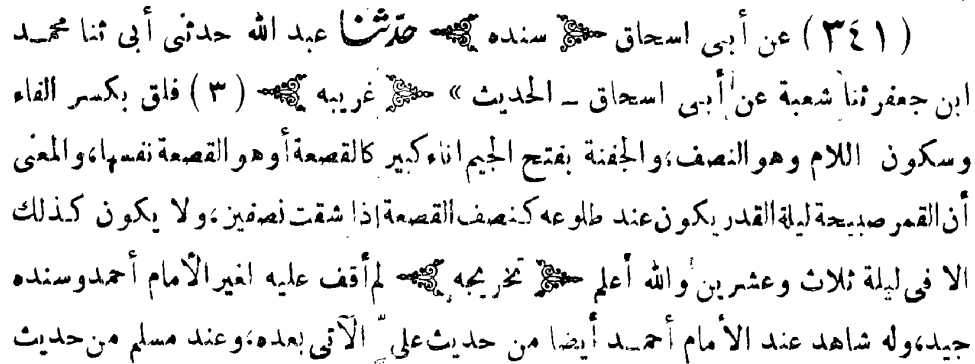 (٣٤١) عن أبى اسحاق ﴿ سنده ﴾ حدثنا عبد الله حدثنى أبى ثنا محمـد
ابن جعفر ثنا شعبة عن أبى اسحاق ـ الحديث » ﴿ غريبه ﴾ (٣) فلق بكسر الفاء
وسكون اللام وهو النصف، والجفنة بفتح الجيم اناء كبير كالقصعة أو هو القصعة نفسها، والمعنى
أن القمر صبيحة ليلة القدر يكون عند طلوعه كنصف القصعة اذا شقت نصفين، ولا يكون كذلك
الا فى ليلة ثلاث وعشرين والله أعلم ﴿ تخريجه ﴾ لم أقف عليه لغير الأمام أحمد وسنده
جيد، وله شاهد عند الأمام أحمـد أيضا من حديث علىّ الآتى بعده، وعند مسلم من حديث